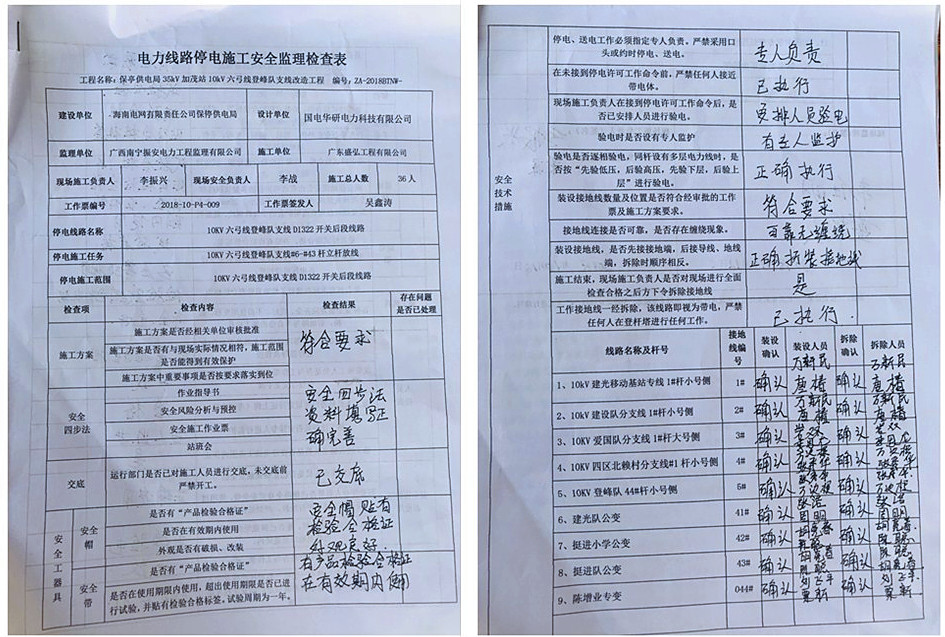 电力线路停电施工安全监理检查表
工程名称：保亭供电局35kV加茂站10kV六弓线登峰队支线改造工程 编号：ZA-2018BTNW-
建设单位 海南电网有限责任公司保亭供电局 设计单位 国电华研电力科技有限公司
监理单位 广西南宁振安电力工程监理有限公司 施工单位 广东盛弘工程有限公司
现场施工负责人 李振兴 现场安全负责人 李战 施工总人数 36人
工作票编号 2018-10-P4-009 工作票签发人 吴鑫涛
停电线路名称 10KV六弓线登峰队支线D1322开关后段线路
停电施工任务 10KV六弓线登峰队支线#6-#43杆立杆放线
停电施工范围 10KV六弓线登峰队支线D1322开关后段线路
检查项 检查内容 检查结果 存在问题
是否已处理
施工方案
施工方案是否经相关单位审核批准
施工方案是否有与现场实际情况相符，施工范围
是否能得到有效保护
施工方案中重要事项是否按要求落实到位
符合要求
安全
四步法
作业指导书
安全风险分析与预控
安全施工作业票
站班会
安全四步法
资料填写正
确完善
交底
运行部门是否已对施工人员进行交底，未交底前
严禁开工。
已交底
安全工器具
安全帽
是否有“产品检验合格证”
是否在有效期内使用
外观是否有破损、改装
安全帽贴有
检验合格证
外观良好.
安全带
是否有“产品检验合格证”
是否在使用期限内使用，超出使用期限是否已进
行试验，并贴有检验合格标签。试验周期为一年。
有产品检验合格证
在有效期内使用
安全
技术
措施
停电、送电工作必须指定专人负责。严禁采用口
头或约时停电、送电。
专人负责
在未接到停电许可工作命令前，严禁任何人接近
带电体。
已执行
现场施工负责人在接到停电许可工作命令后，是
否已安排人员进行验电。
安排人员验电
验电时是否设有专人监护
有专人监护
验电是否逐相验电，同杆设有多层电力线时，是
否按“先验低压，后验高压，先验下层，后验上
层”进行验电。
正确执行
装设接地线数量及位置是否符合经审批的工作
票及施工方案要求。
符合要求
接地线连接是否可靠，是否存在缠绕现象。
可靠无缠绕
装设接地线，是否先接接地端，后接导线、地线
端，拆除时顺序相反。
正确拆装接地线
施工结束，现场施工负责人是否对现场进行全面
检查合格之后方下令拆除接地线
是
工作接地线一经拆除，该线路即视为带电，严禁
任何人在登杆塔进行任何工作。
已执行.
线路名称及杆号 接地线编号 装设确认 装设人员 拆除确认 拆除人员
1、10kV建光移动基站专线1#杆小号侧 1# 确认 确认
2、10kV建设队分支线1#杆小号侧 2# 确认 确认
3、10KV爱国队分支线1#杆大号侧 3# 确认 确认
4、10KV四区北赖村分支线#1杆小号侧 4# 确认 确认
5、10KV登峰队44#杆小号侧 5# 确认 确认
6、建光队公变 41# 确认 确认
7、挺进小学公变 42# 确认 确认
8、挺进队公变 43# 确认 确认
9、陈增业专变 044# 确认 确认